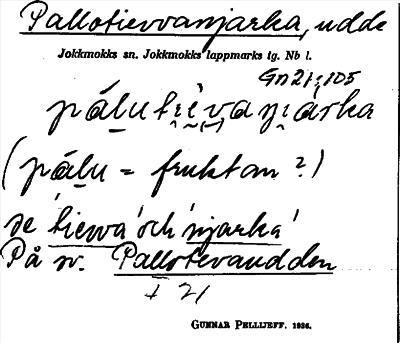 Pallotievvanjarka, udde
Jokkmokks sn. Jokkmokks lappmarks tg. Nb l.
Gn21:105
páluti̯èvaŋi̯árka
(pálu = fruktan?)
se 'tievva' och 'njarka'
På sv. Pallotevaudden
I 21
GUNNAR PELLIJEFF. 1936.